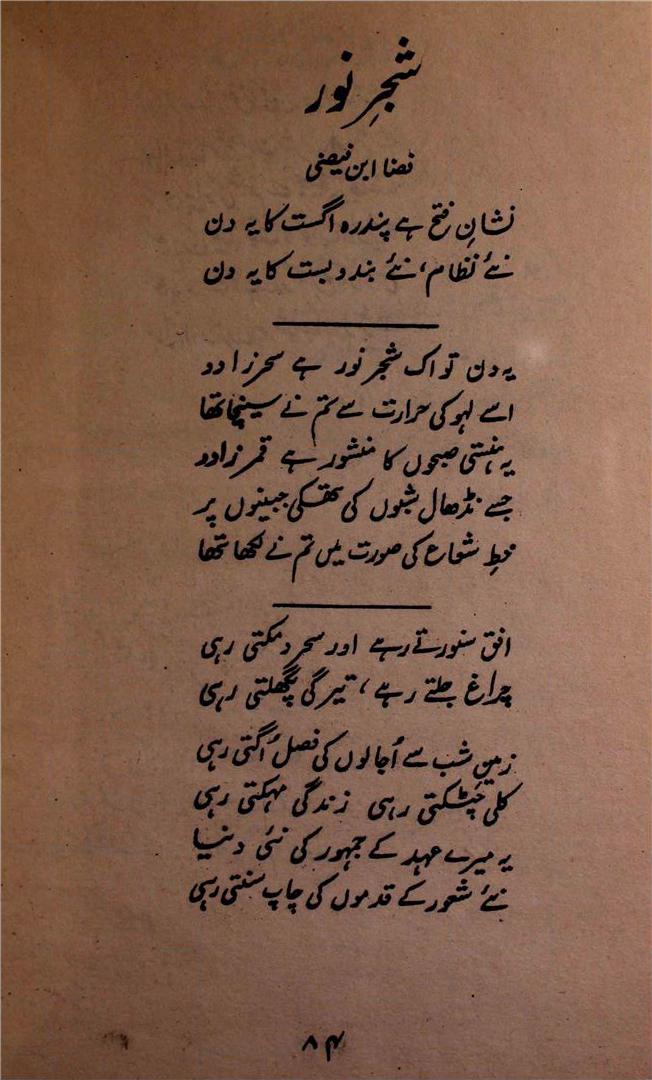 شجرِ نور
فضا ابن فیضی
نشانِ فتح ہے پندرہ اگست کا یہ دن
نئے نظام، نئے بندوبست کا یہ دن
یہ دن تو اک شجرِ نور ہے سحرزادو
اسے لہو کی حرارت سے تم نے سینچا تھا
یہ ہنستی صبحوں کا منشور ہے قمرزادو
جسے نڈھال شبوں کی تھکی جبینوں پر
خطِ شعاع کی صورت میں تم نے لکھا تھا
افق سنورتے رہے اور سحر دمکتی رہی
چراغ جلتے رہے، تیرگی پگھلتی رہی
زمینِ شب سے اُجالوں کی فصل اُگتی رہی
کلی چٹکتی رہی زندگی مہکتی رہی
یہ میرے عہد کے جمہور کی نئی دنیا
نئے شعور کے قدموں کی چاپ سنتی رہی
۸۴